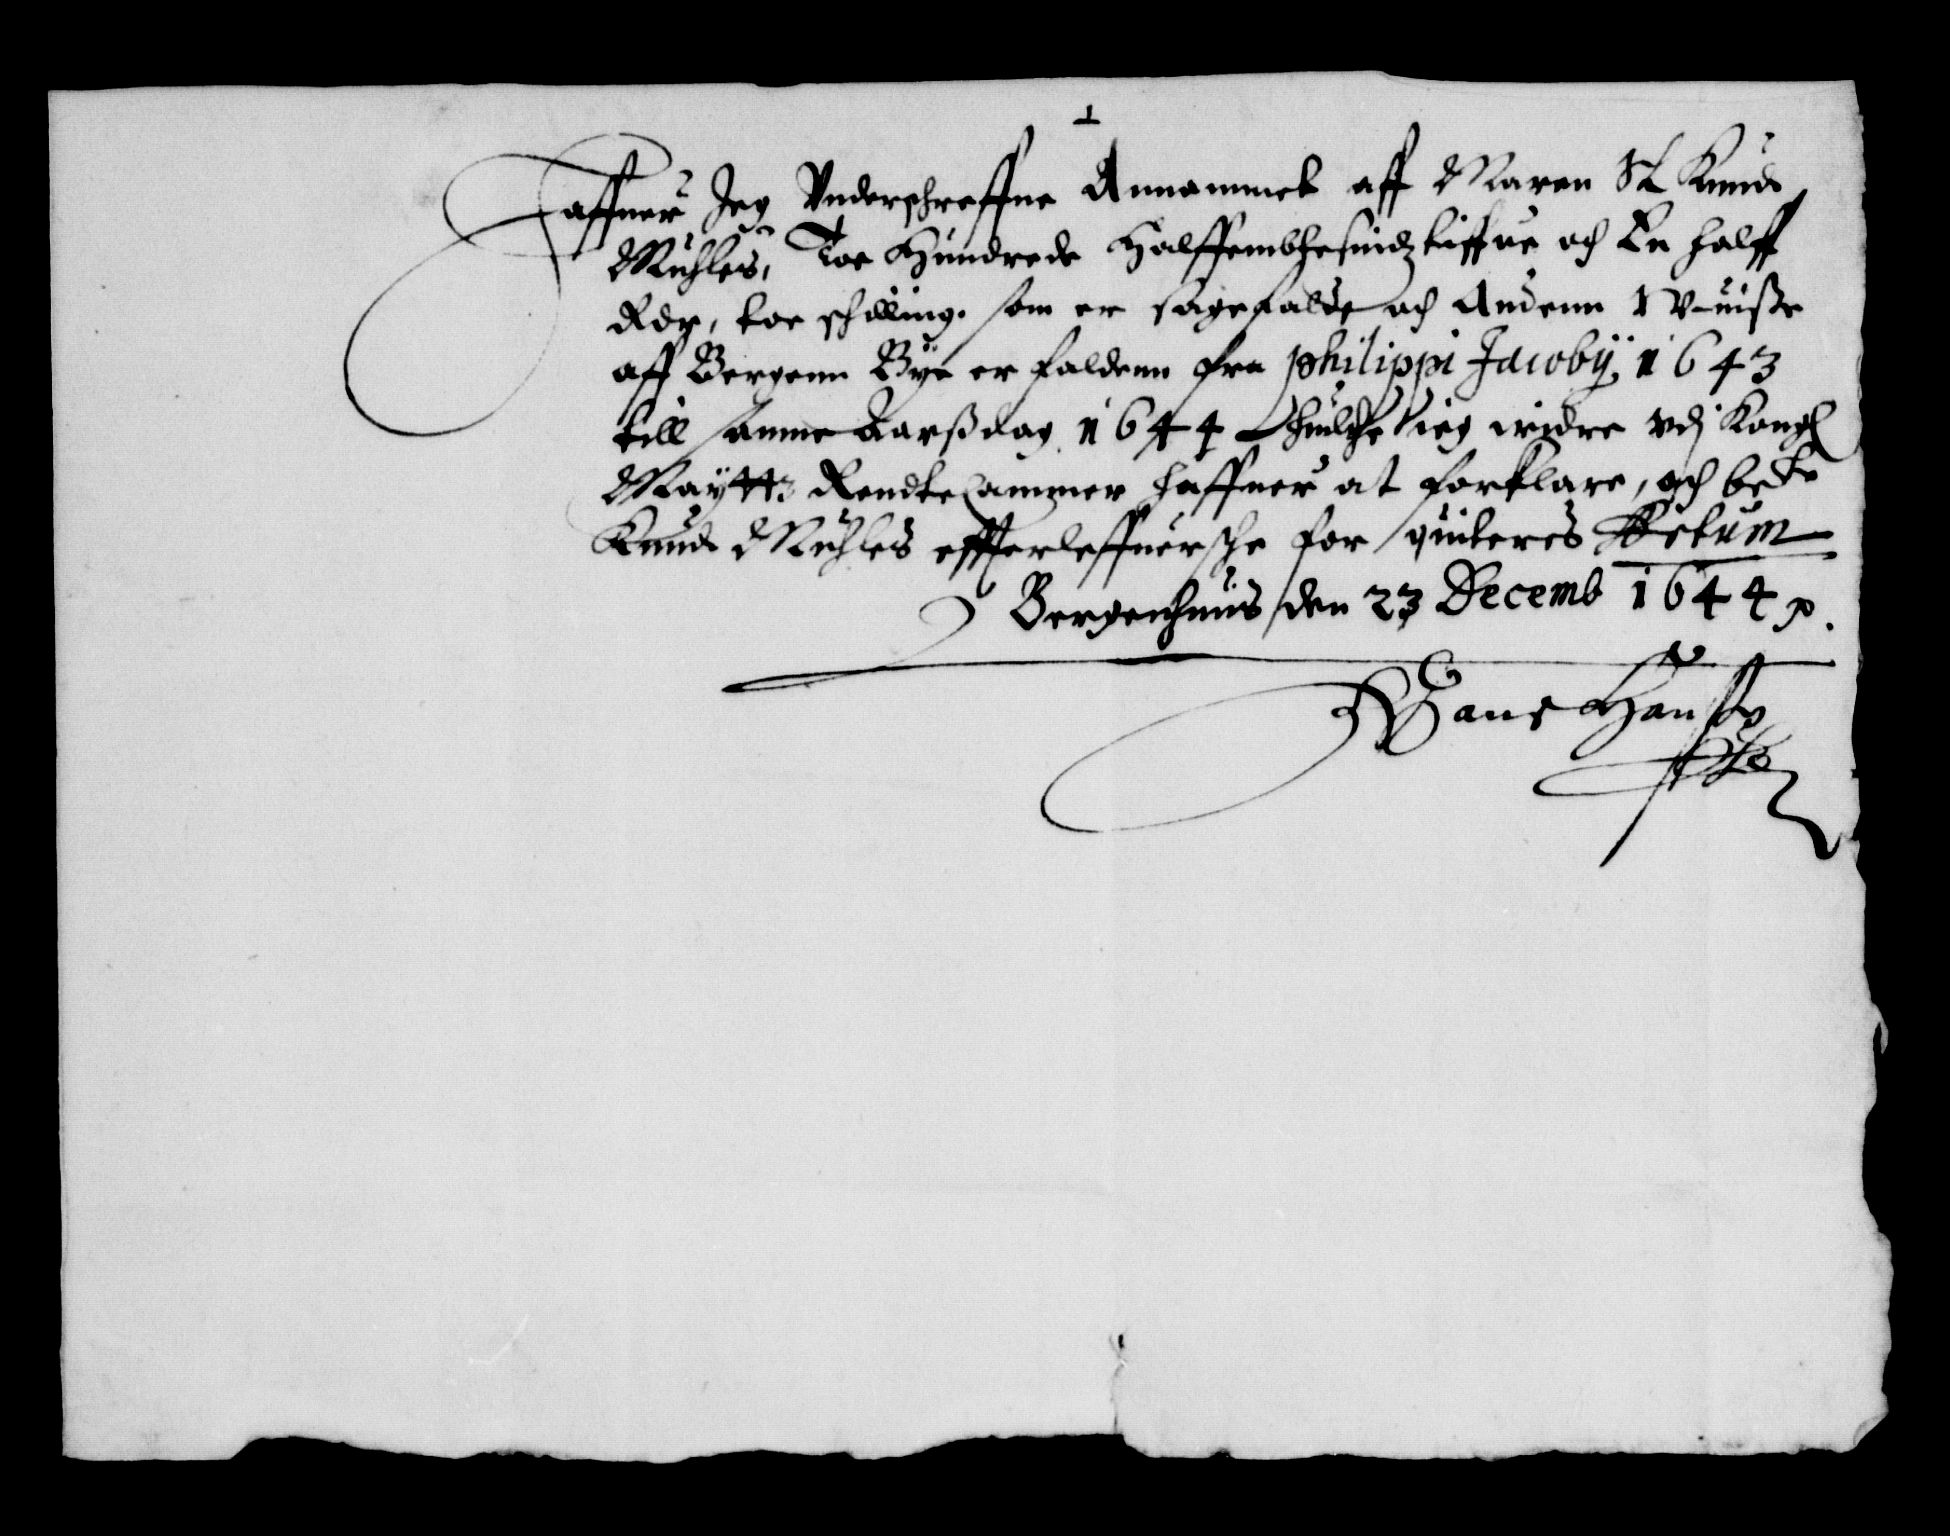 1
Haffuer Jeg Vnderschreffne Annammet aff Maren Sl Knuds
Muhles, Toe Hundrede Halffembthesindztiuffue och En halff
Rdr, toe schilling. som er sagefalds och Anden Wuisse
aff Bergenn Bye er faldenn fra philippi Jacobÿ 1643
till samme Aarßdag 1644 huilche ieg widre vdj Kongl
Maÿttz Rendtecammer haffuer at forklare, och be.te
Knuds Muhles effterleffuersche for quiteres Actum
Bergenhuus den 23 Decemb 1644 p.
Hans Hanssøn